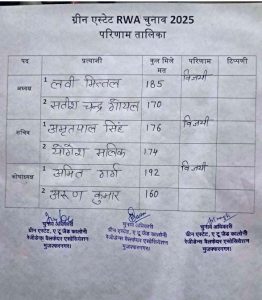 ग्रीन एस्टेट RWA चुनाव 2025
परिणाम तालिका
पद प्रत्याशी कुल मिले मत परिणाम टिप्पणी
अध्यक्ष 1 लवी मित्तल 185 विजयी
2 सतीश चन्द्र गोयल 170
सचिव 1 अमृतपाल सिंह 176 विजयी
2 योगेश मलिक 174
कोषाध्यक्ष 1 अमित गर्ग 192 विजयी
2 अरुण कुमार 160
चुनाव अधिकारी चुनाव अधिकारी चुनाव अधिकारी
ग्रीन एस्टेट, ए टू जेड कालोनी ग्रीन एस्टेट, ए टू जेड कालोनी
रेजीडेन्स वैलफेयर एसोसियेशन रेजीडेन्स वैलफेयर एसोसियेशन
मुजफ्फरनगर। मुजफ्फरनगर।